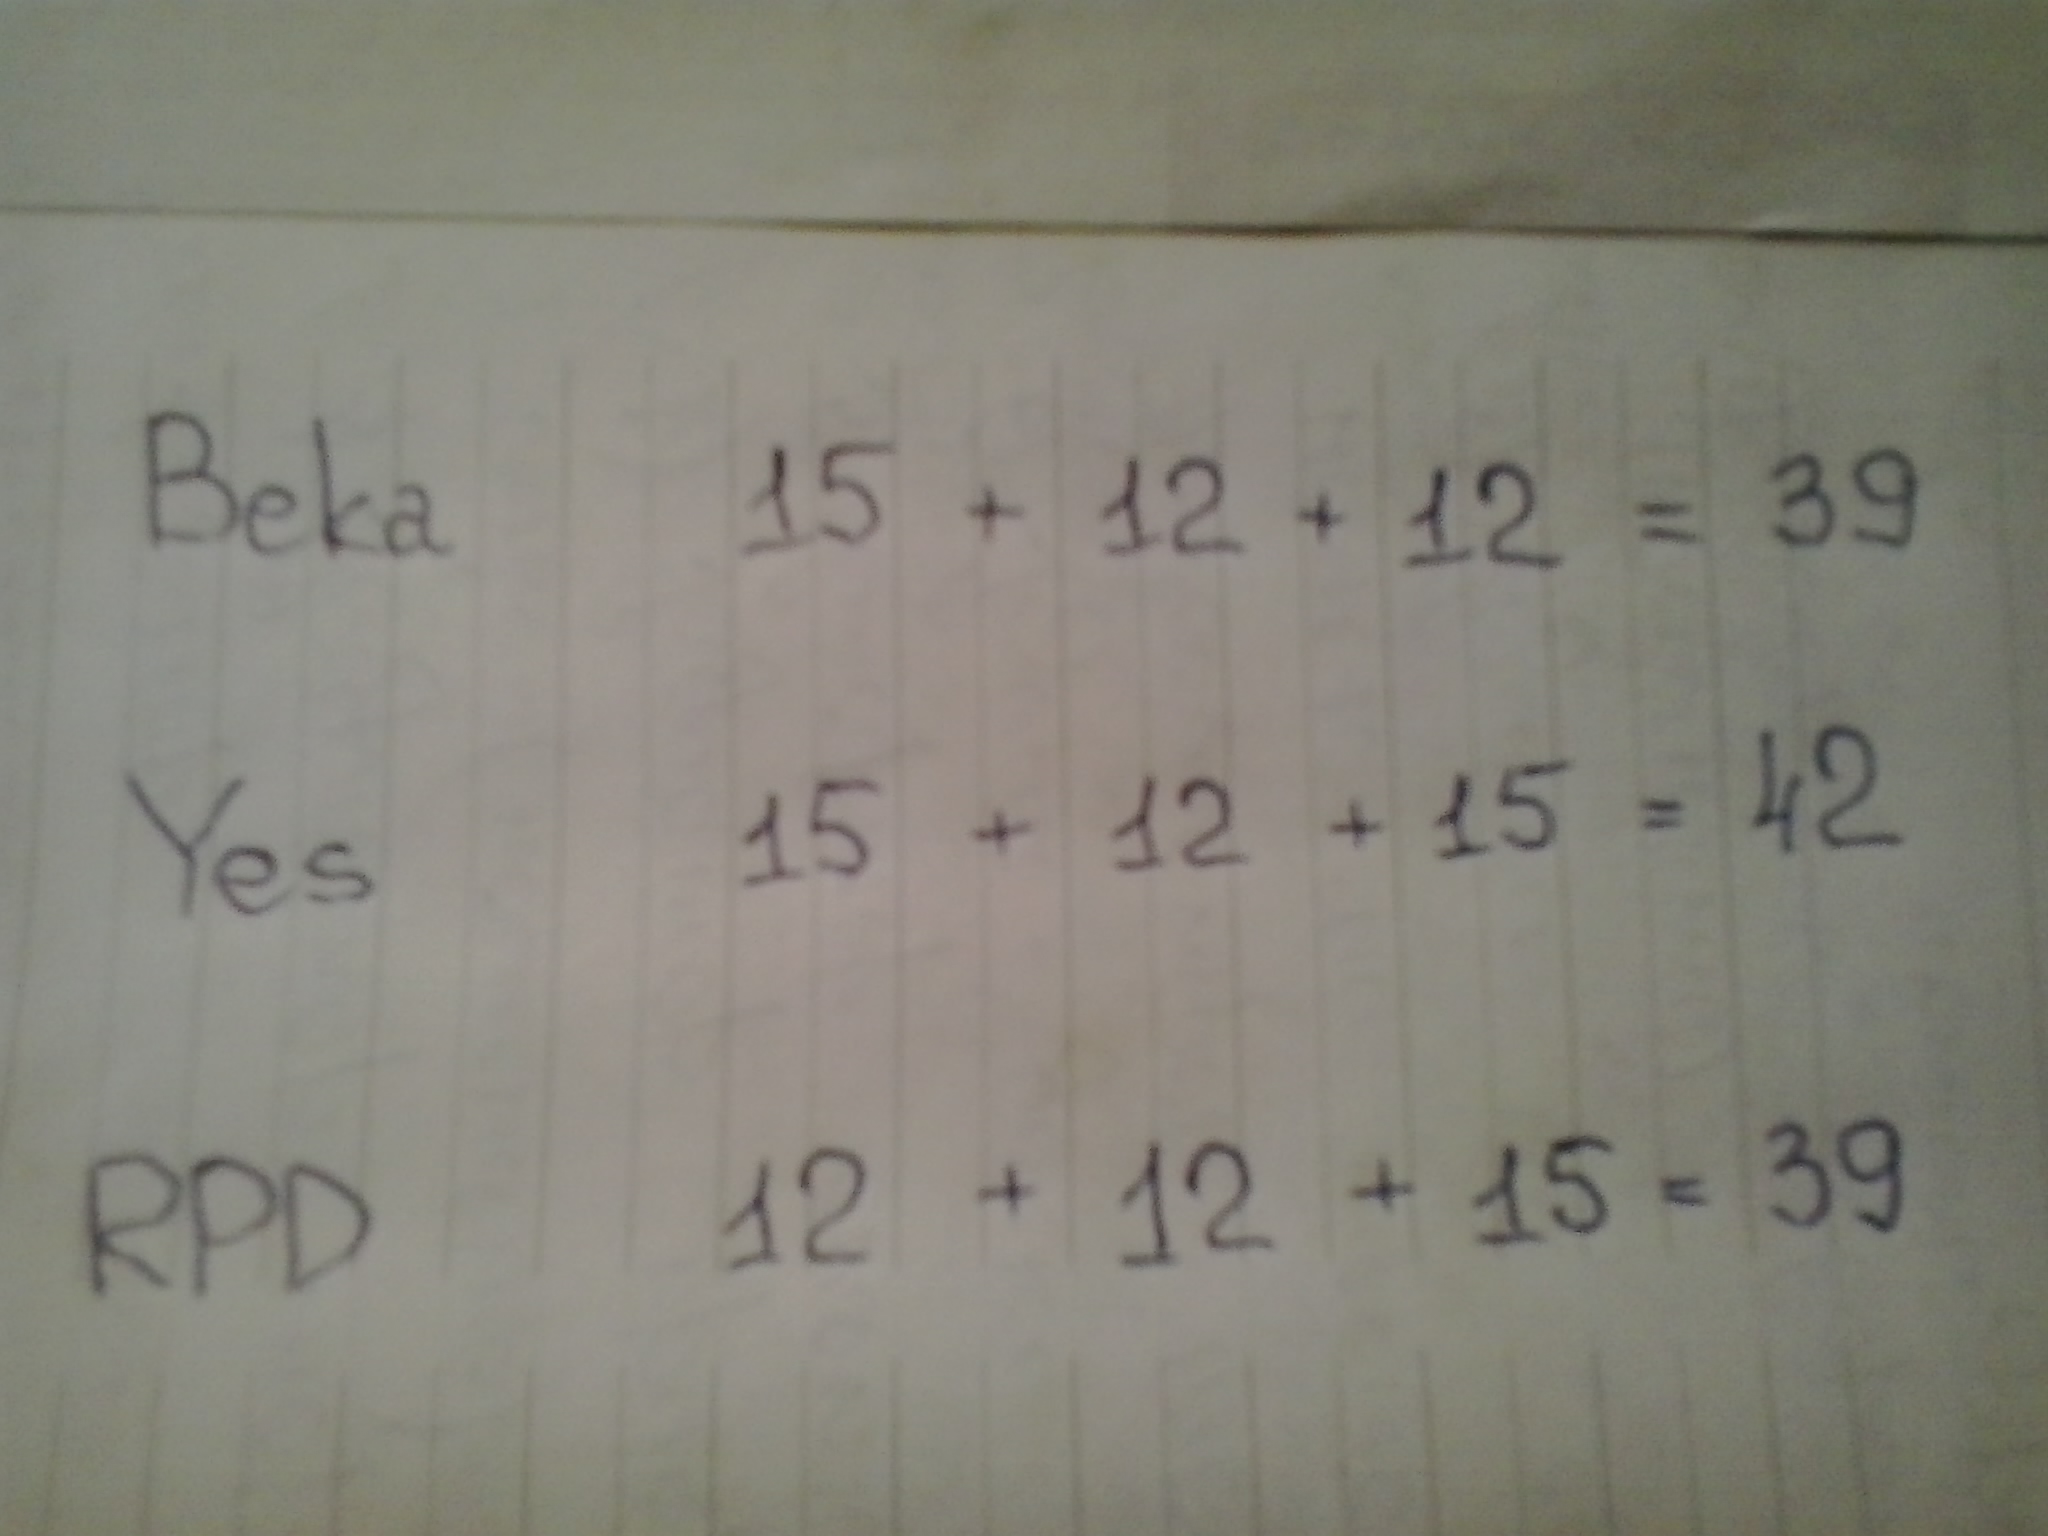 Beka 15 + 12 + 12 = 39
Yes 15 + 12 + 15 = 42
RPD 12 + 12 + 15 = 39